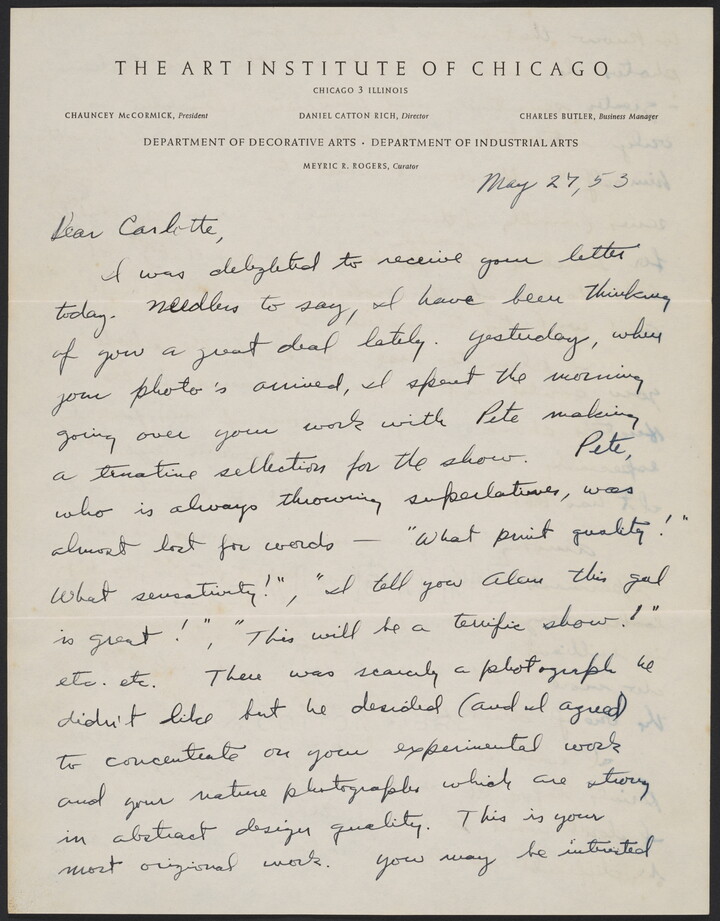 THE ART INSTITUTE OF CHICAGO
CHICAGO 3 ILLINOIS
CHAUNCEY McCORMICK, President DANIEL CATTON RICH, Director CHARLES BUTLER, Business Manager
DEPARTMENT OF DECORATIVE ARTS · DEPARTMENT OF INDUSTRIAL ARTS
MEYRIC R. ROGERS, Curator
May 27, 53
Dear Carlotte,
I was delighted to receive your letter
today. Needless to say, I have been thinking
of you a great deal lately. Yesterday, when
your photo's arrived, I spent the morning
going over your work with Pete making
a tenative sellection for the show. Pete,
who is always throwing superlatives, was
almost lost for words — "What print quality!"
What sensativity!", "I tell you Alan this gal
is great!", "This will be a terrific show.!"
etc. etc. There was scarcely a photograph he
didn't like but he desided (and I agree)
to concentrate on your experimental work
and your nature photographs which are strong
in abstract design quality. This is your
most origional work. You may be intrested